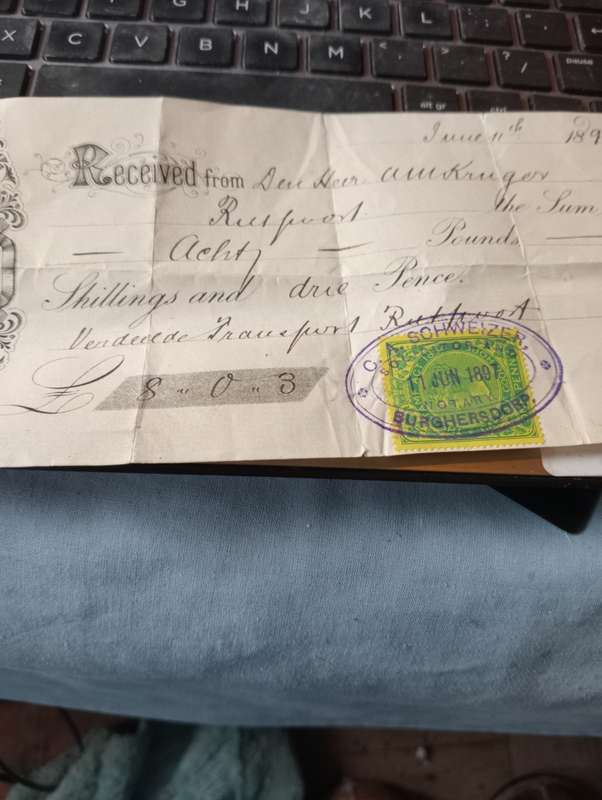 June 11th 189
Received from Den Heer AM Kruger
the Sum
Acht Pounds
Shillings and drie Pence.
Transport
£ 8 " 0 " 3
C. SCHWEIZER,
11 JUN 1897
NOTARY
BURGHERSDORP.
X C V B N M
H J K L
alt gr ctrl
pause